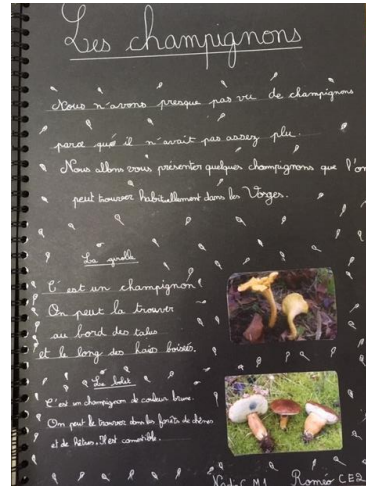 Les champignons
Nous n'avons presque pas vu de champignons
parce qu'il n'avait pas assez plu.
Nous allons vous présenter quelques champignons que l'on
peut trouver habituellement dans les Vosges.
La girolle
C'est un champignon
On peut la trouver
au bord des talus
et le long des haies boisées.
Le bolet
C'est un champignon de couleur brune.
On peut le trouver dans les forêts de chênes
et de hêtres. Il est comestible.
CM1 Roméo CE2